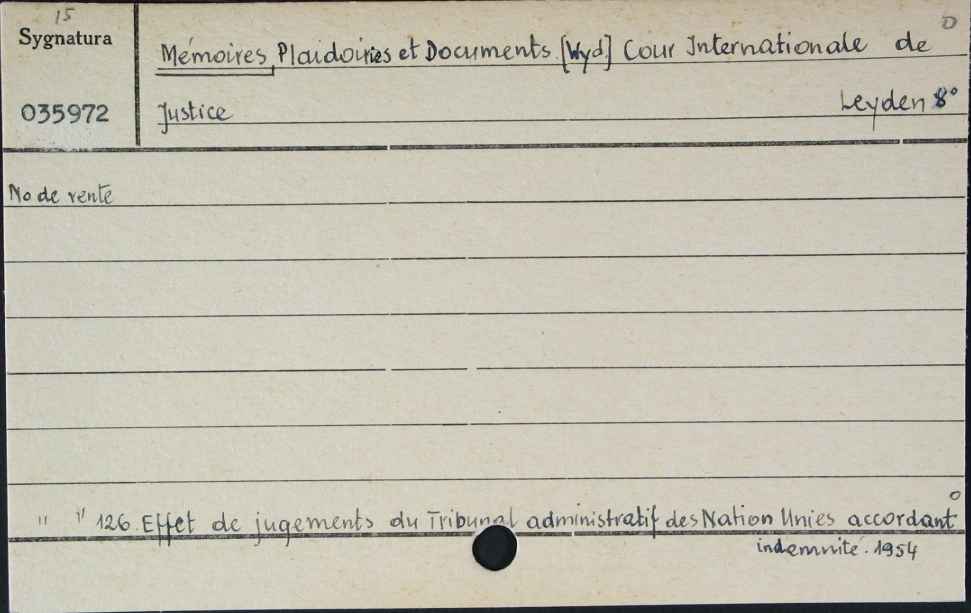 15
Sygnatura
035972
Mémoires, Plaidoiries et Documents. [Wyd] Cour Internationale de
Justice
Leyden 8°
No de vente
" " 126. Effet de jugements du Tribunal administratif des Nation Unies accordant
indemnité. 1954